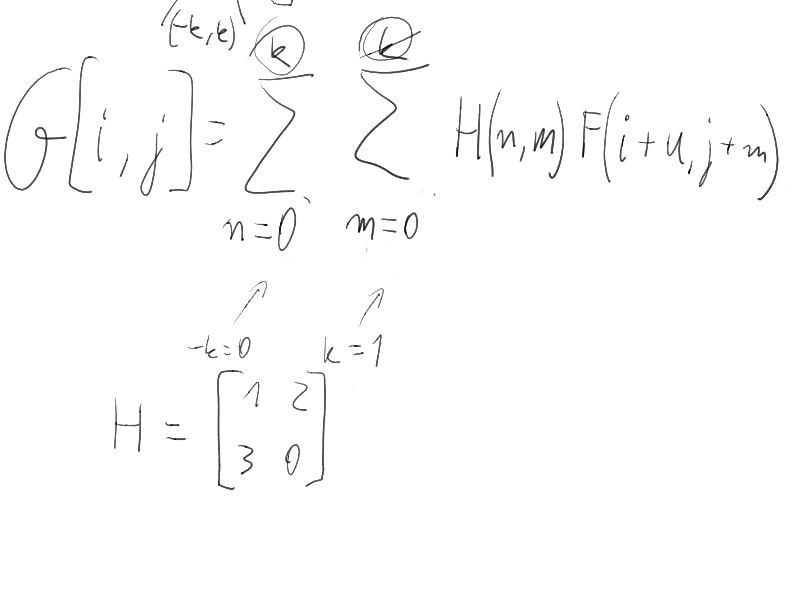 (-k,k)
G[i,j] = \sum_{n=0}^{k} \sum_{m=0}^{k} H(n,m) F(i+u,j+m)
-k=0 k=1
H = [1 2
3 0]